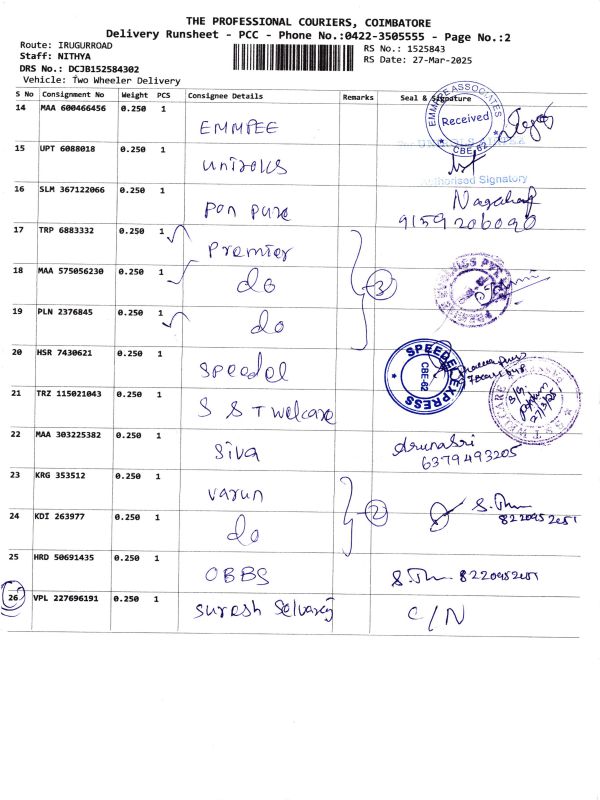 THE PROFESSIONAL COURIERS, COIMBATORE
Delivery Runsheet - PCC - Phone No.:0422-3505555 - Page No.:2
Route: IRUGURROAD
Staff: NITHYA
DRS No.: DCJB152584302
Vehicle: Two Wheeler Delivery
RS No.: 1525843
RS Date: 27-Mar-2025
S No Consignment No Weight PCS Consignee Details Remarks Seal & Signature
14 MAA 600466456 0.250 1 EMMPEE
EMMPEE ASSOCIATES
Received
CBE-62
15 UPT 6088018 0.250 1 uniroks
Authorised Signatory
16 SLM 367122066 0.250 1 Pon pure
9159206090
17 TRP 6883332 0.250 1 Premier
18 MAA 575056230 0.250 1 do 3
19 PLN 2376845 0.250 1 do
20 HSR 7430621 0.250 1 Speedel
SPEEDEL EXPRESS
CBE-62
21 TRZ 115021043 0.250 1 S S T welcare
22 MAA 303225382 0.250 1 Siva
6379493205
23 KRG 353512 0.250 1 varun
24 KDI 263977 0.250 1 do 2
25 HRD 50691435 0.250 1 OBBS
26 VPL 227696191 0.250 1 Suresh Selvaraj C/N